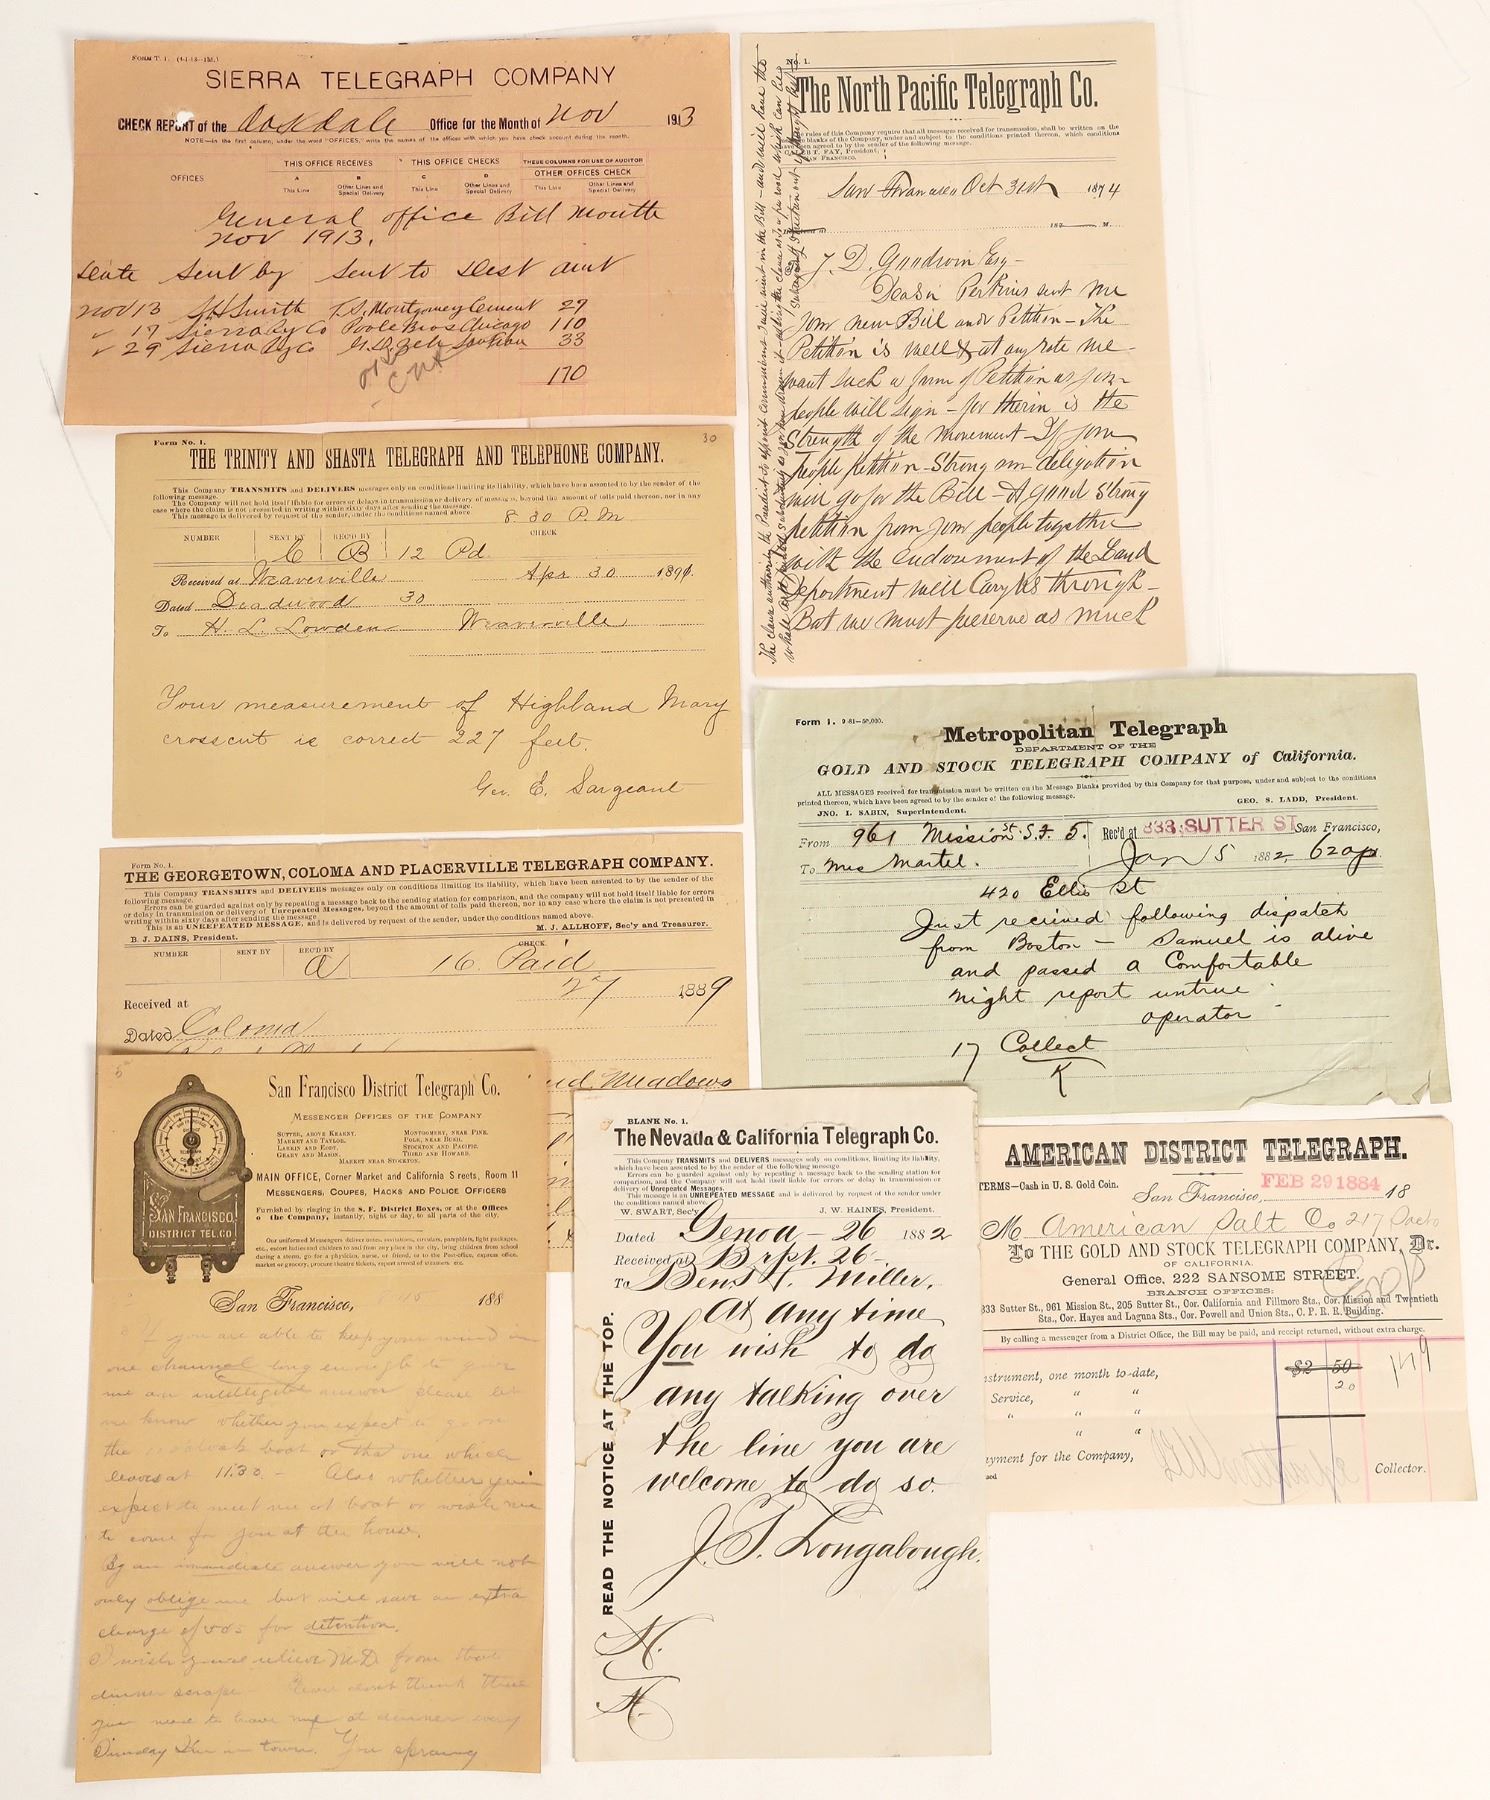 FORM T. 1.
SIERRA TELEGRAPH COMPANY
CHECK REPORT of the Oakdale Office for the Month of Nov 1913
NOTE—In the first column, under the word "OFFICES," write the names of the offices with which you have check account during the month.
OFFICES
THIS OFFICE RECEIVES
THIS OFFICE CHECKS
THESE COLUMNS FOR USE OF AUDITOR
OTHER OFFICES CHECK
A B C D
This Line Other Lines and Special Delivery This Line Other Lines and Special Delivery This Line Other Lines and Special Delivery
General office Bill Month
Nov 1913.
Date Sent by Sent to Dest amt
Nov 13 SH Smith T.S. Montgomery Cement 29
" 17 Sierra Ry Co Poole Bros Chicago 110
" 29 Sierra Ry Co 33
170
No. 1.
The North Pacific Telegraph Co.
rules of this Company require that all messages received for transmission, shall be written on the
blanks of the Company, under and subject to the conditions printed thereon, which conditions
have been agreed to by the sender of the following message.
FAY, President,
SAN FRANCISCO.
San Francisco Oct 31st 1874
187 M.
J. D. Goodwin Esq—
Dear Sir Perkins sent me
your new Bill and Petition—The
Petition is well & at any rate we
want such a form of Petition as your
people will sign—for therin is the
Strength of the movement—If your
People petition—Strong our delegation
will go for the Bill—A good strong
petition from your people together
with the endorsement of the Land
Department will Carry us through—
But we must preserve as much
30
Form No. 1.
THE TRINITY AND SHASTA TELEGRAPH AND TELEPHONE COMPANY.
This Company TRANSMITS and DELIVERS messages only on conditions limiting its liability, which have been assented to by the sender of the
following message.
The Company will not hold itself liable for errors or delays in transmission or delivery of messages, beyond the amount of tolls paid thereon, nor in any
case where the claim is not presented in writing within sixty days after sending the message.
This message is delivered by request of the sender, under the conditions named above.
8:30 P.M.
NUMBER SENT BY REC'D BY CHECK
C B 12 Pd.
Received at Weaverville Apr 30 1891.
Dated Deadwood 30
To H. L. Lowden Weaverville
Your measurement of Highland Mary
crosscut is correct 227 feet.
Geo. E. Sargeant
Form 1. 9-81—50,000.
Metropolitan Telegraph
DEPARTMENT OF THE
GOLD AND STOCK TELEGRAPH COMPANY of California.
ALL MESSAGES received for transmission must be written on the Message Blanks provided by this Company for that purpose, under and subject to the conditions
printed thereon, which have been agreed to by the sender of the following message.
JNO. I. SABIN, Superintendent. GEO. S. LADD, President.
From 961 Mission St. S.F. 5. Rec'd at 333 SUTTER ST San Francisco,
To Mrs Martel. Jan 5 1882 620p
420 Ellis St
Just received following dispatch
from Boston — Samuel is alive
and passed a Comfortable
night report untrue
operator
17 Collect
K
Form No. 1.
THE GEORGETOWN, COLOMA AND PLACERVILLE TELEGRAPH COMPANY.
This Company TRANSMITS and DELIVERS messages only on conditions limiting its liability, which have been assented to by the sender of the
following message.
Errors can be guarded against only by repeating a message back to the sending station for comparison, and the company will not hold itself liable for errors
or delay in transmission or delivery of Unrepeated Messages, beyond the amount of tolls paid thereon, nor in any case where the claim is not presented in
writing within sixty days after sending the message
This is an UNREPEATED MESSAGE, and is delivered by request of the sender, under the conditions named above.
B. J. DAINS, President. M. J. ALLHOFF, Sec'y and Treasurer.
NUMBER SENT BY REC'D BY CHECK
a 16 Paid
27 1889
Received at
Dated Coloma
Meadows
5
San Francisco District Telegraph Co.
MESSENGER OFFICES OF THE COMPANY
SUTTER, ABOVE KEARNY. MONTGOMERY, NEAR PINE.
MARKET AND TAYLOR. POLK, NEAR BUSH.
LARKIN AND EDDY. STOCKTON AND PACIFIC.
GEARY AND MASON. THIRD AND HOWARD.
MARKET NEAR STOCKTON.
MAIN OFFICE, Corner Market and California Streets, Room 11
MESSENGERS, COUPES, HACKS AND POLICE OFFICERS
Furnished by ringing in the S. F. District Boxes, or at the Offices
of the Company, instantly, night or day, to all parts of the city.
Our uniformed Messengers deliver notes, invitations, circulars, pamphlets, light packages,
etc., escort ladies and children to and from any place in the city, bring children from school
during a storm, go for a physician, nurse, or friend, or to the Post Office, express office,
market or grocery, procure theatre tickets, report arrival of steamers, etc.
SAN FRANCISCO
DISTRICT TEL.CO
San Francisco, 188
If you are able to keep your mind in
one channel long enough to give
me an intelligible answer please let
me know whether you expect to go on
the boat or the one which
leaves at 11:30.— Also whether you
expect to meet me at boat or wish me
to come for you at the house.
By an immediate answer you will not
only oblige me but will save an extra
charge of for detention.
I wish you would relieve M.D. from that
dinner scrape— Please don't think that
you need to have me at dinner every
Sunday in town. You
BLANK No. 1.
The Nevada & California Telegraph Co.
This Company TRANSMITS and DELIVERS messages only on conditions, limiting its liability,
which have been assented to by the sender of the following message
Errors can be guarded against only by repeating a message back to the sending station for
comparison, and the Company will not hold itself liable for errors or delay in transmission or
delivery of Unrepeated Messages.
This message is an UNREPEATED MESSAGE and is delivered by request of the sender under
the conditions named above.
W. SWART, Sec'y J. W. HAINES, President.
Dated Genoa — 26 1882
Received at B rpt. 26—
To Benj. F. Miller,
At any time
You wish to do
any talking over
the line you are
welcome to do so.
J. T. Longabough.
READ THE NOTICE AT THE TOP.
AMERICAN DISTRICT TELEGRAPH.
TERMS—Cash in U. S. Gold Coin.
San Francisco, FEB 29 1884 18
M American Salt Co 217 Sacto
To THE GOLD AND STOCK TELEGRAPH COMPANY, Dr.
OF CALIFORNIA.
General Office, 222 SANSOME STREET.
BRANCH OFFICES:
333 Sutter St., 961 Mission St., 205 Sutter St., Cor. California and Fillmore Sts., Cor. Mission and Twentieth
Sts., Cor. Hayes and Laguna Sts., Cor. Powell and Union Sts., C. P. R. R. Building.
By calling a messenger from a District Office, the Bill may be paid, and receipt returned, without extra charge.
nstrument, one month to date, $2 50
Service, " " 20
" " "
" "
ayment for the Company,
Collector.